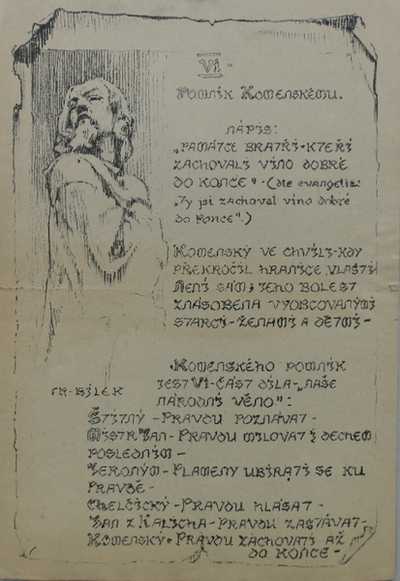 VI.
Pomník Komenskému.
nápis:
„Památce bratří - kteří
zachovali víno dobré
do konce" - (dle evangelia:
„Ty jsi zachoval víno dobré
do konce".)
Komenský ve chvíli - kdy
překročil hranice vlasti
není sám; jeho bolest
znásobena vyobcovanými
starci - ženami a dětmi -
Komenského pomník
jest VI - část díla - „naše
národní věno":
Fr. Bílek
Štítný - Pravdu poznávat -
Mistr Jan - Pravdu milovat i dechem
posledním -
Jeroným - Plameny ubírati se ku
Pravdě -
Chelčický - Pravdu hlásat -
Jan z Kalicha - Pravdu zastávat -
Komenský - Pravdu zachovati až
do konce -